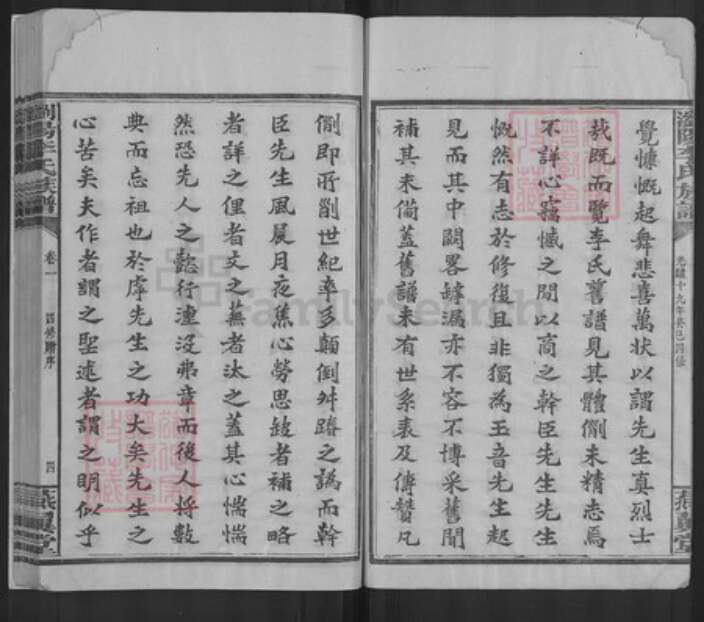 瀏陽李氏族譜
光緒十九年癸巳四修
燕翼堂
覺慷慨起舞悲喜萬狀以謂先生真烈士
哉既而覽李氏舊譜見其體例未精志焉
不詳心竊憾之間以商之幹臣先生先生
慨然有志於修復且非獨為玉音先生起
見而其中闕畧罅漏亦不容不博采舊聞
補其未備蓋舊譜未有世系表及傳贊凡
例即所劄世紀率多顛倒舛踳之譌而幹
臣先生風晨月夜焦心勞思缺者補之略
者詳之俚者文之蕪者汰之蓋其心惴惴
然恐先人之懿行湮沒弗章而後人將數
典而忘祖也於虖先生之功大矣先生之
心苦矣夫作者謂之聖述者謂之明似乎
瀏陽李氏族譜
卷一
首修贈序
四
燕翼堂
FamilySearch